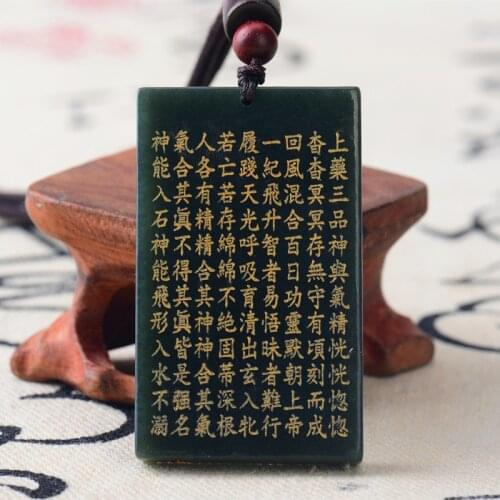 上藥三品神與氣精恍恍惚惚
杳杳冥冥存無守有頃刻而成
回風混合百日功靈默朝上帝
一紀飛升智者易悟昧者難行
履踐天光呼吸育清出玄入牝
若亡若存綿綿不絕固蒂深根
人各有精精合其神神合其氣
氣合其眞不得其眞皆是强名
神能入石神能飛形入水不溺